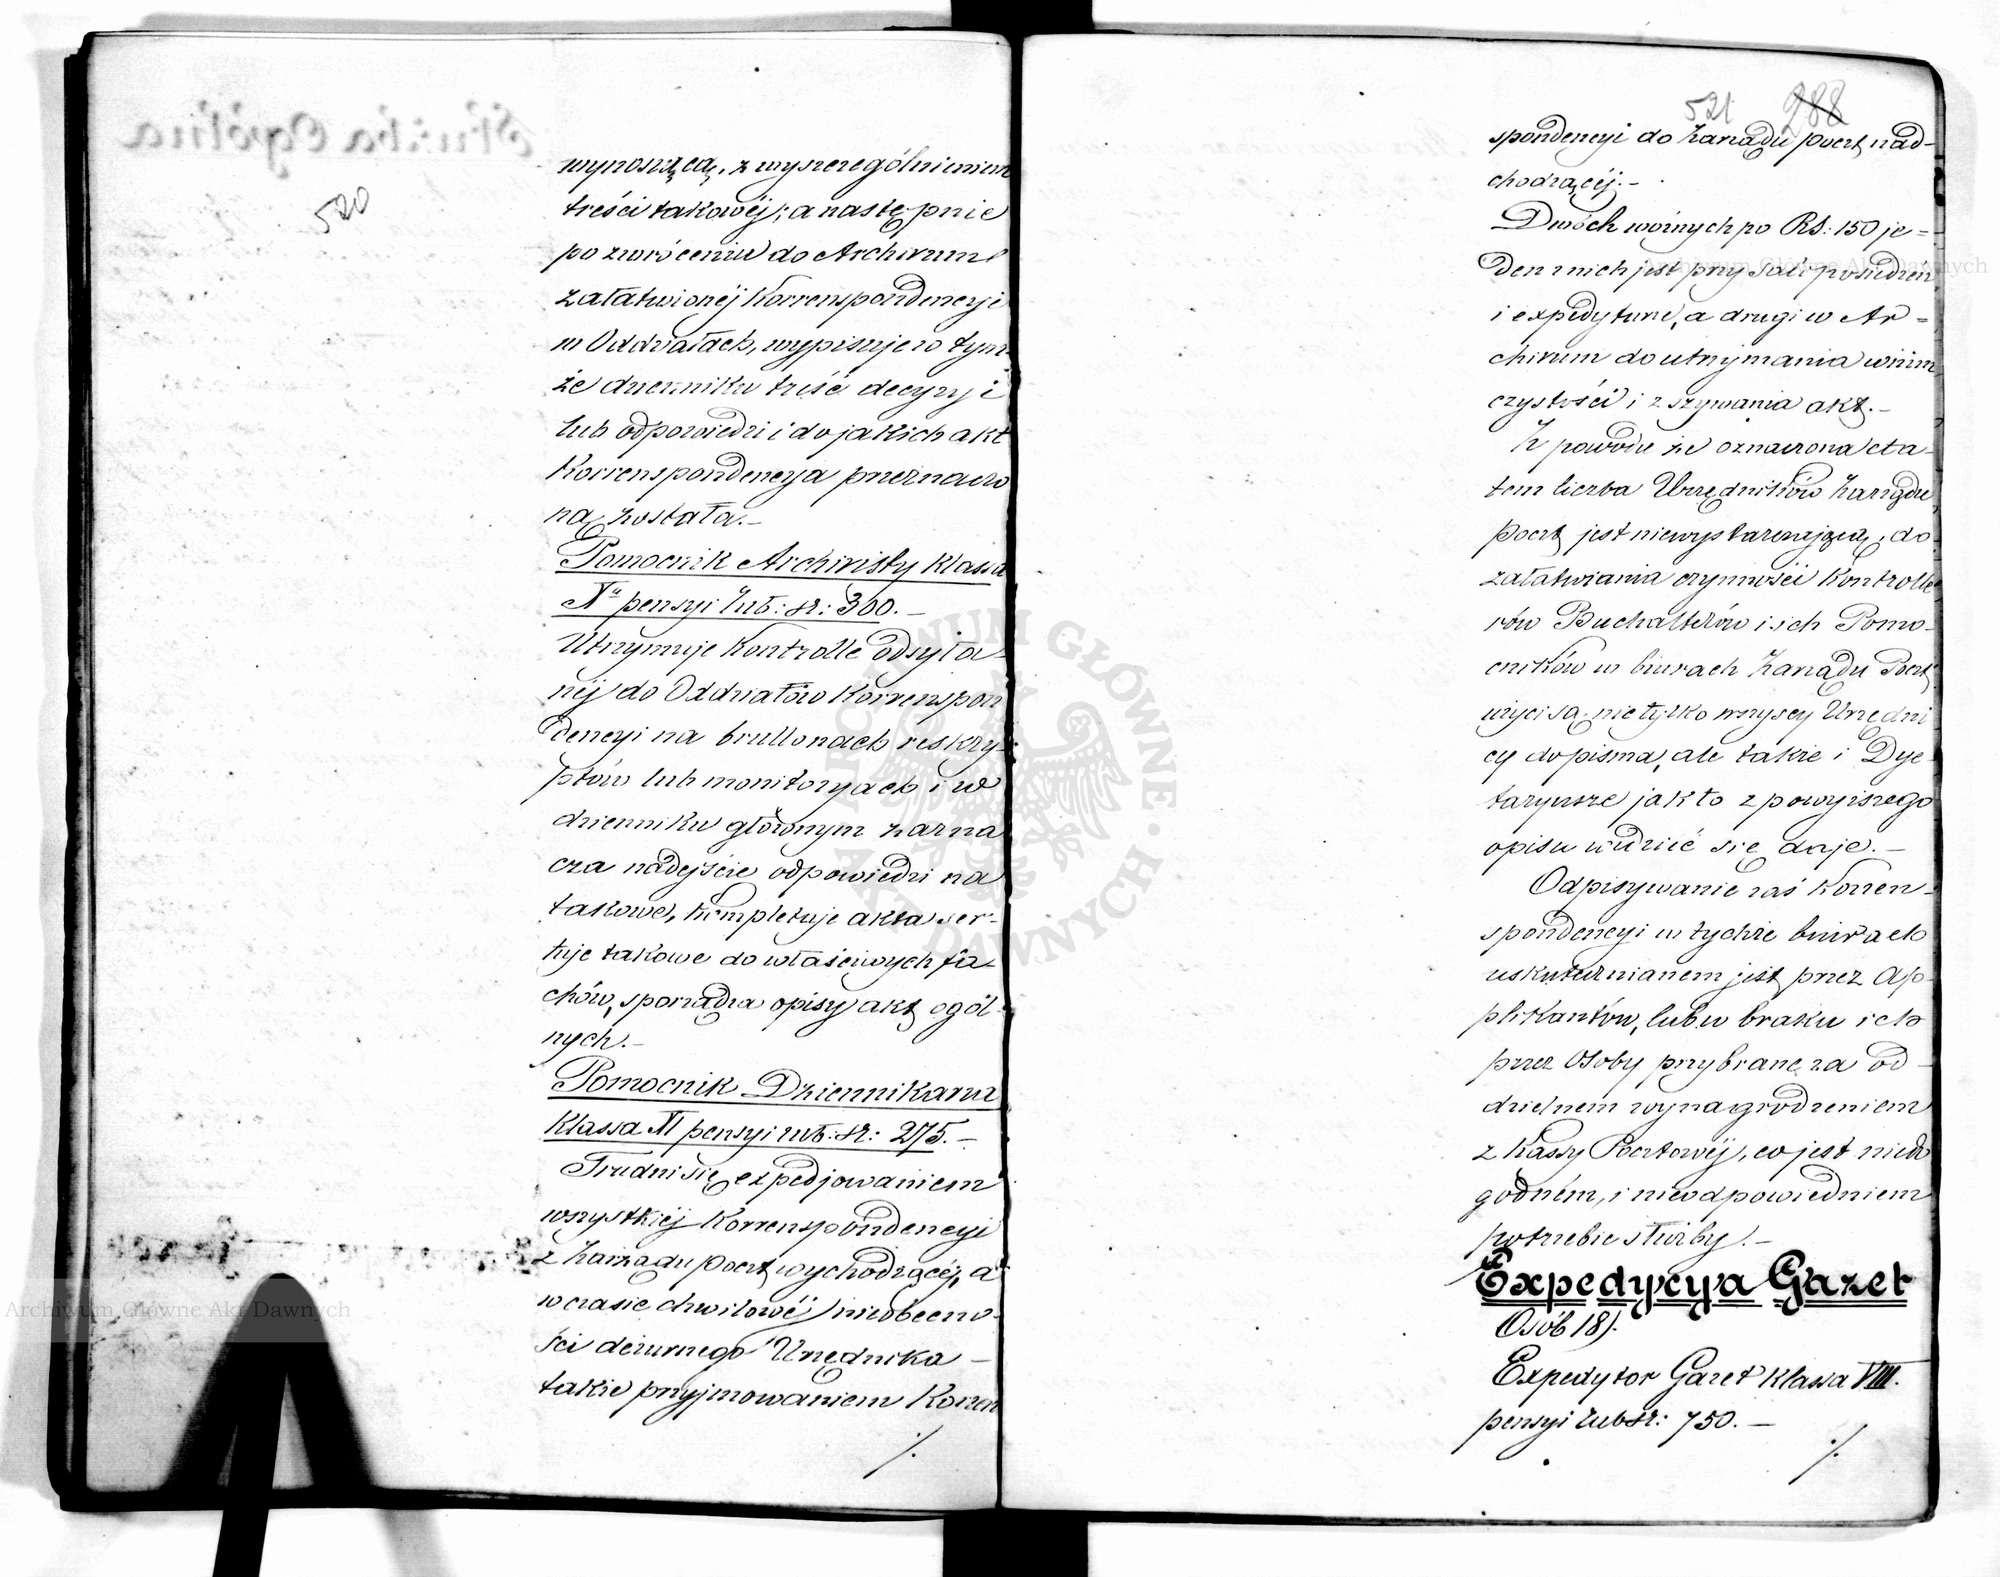 520
wynoszącą, z wyszczególnieniem
treści takowéj; a następnie
po zwróceniu do Archiwum
załatwionéj Korrespondencyi
w Oddziałach, wypisuje w tym
że dzienniku treść decyzyi
lub odpowiedzi i do jakich akt
Korrenspondencya przeznaczo
na została.–
Pomocnik Archiwisty klassa
XIa pensyi rub: sr: 300.–
Utrzymuje Kontrolle odsyła-
néj do Oddziałów Korrenspon
dencyi na brullonach reskry-
ptów lub monitoryach i w
dzienniku głównym zazna
cza nadejście odpowiedzi na
takowe, kompletuje akta ser-
tuje takowe do właściwych fa-
chów, sporządza opisy akt ogól-
nych.–
Pomocnik Dziennikarza
klassa XI pensyi rub: sr: 275.–
Trudni się expedjowaniem
wszystkiéj Korrenspondencyi
z Zarządu poczt wychodzącéj, a
w czasie chwilowéj nieobecno-
ści dezurnego Urzędnika –
takie przyjmowaniem Korren
./.
521 288
spondencyi do Zarządu poczt nad-
chodzącéj.–
Dwóch woźnych po RS: 150 je-
den z nich jest przy sali posiedzeń
i expedyturze, a drugi w Ar-
chiwum do utrzymania w niem
czystości i zszywania akt.–
Z powodu że oznaczona eta-
tem liczba Urzędników Zarządu
poczt jest niewystarczającą, do
załatwiania czynności Kontrolle
rów Buchalterów i ich Pomo-
cników w biurach Zarządu Poczt
użyci są nie tylko wszyscy Urzędni
cy do pisma, ale takze i Dye-
taryusze jak to z powyższego
opisu widzić się daje.–
Odpisywanie zaś Korren-
spondencyi w tychże biurach
uskutecznianem jest przez Ap-
plikantów, lub w braku ich
przez Osoby przybrane za od-
dzielnem wynagrodzeniem
z Kassy Pocztowéj, co jest niedo
godném, i nieodpowiedniem
potrzebie służby.–
Expedycya Gazet
Osób 18).
Expedytor Gazet klassa VIII.
pensyi rub sr: 750.–
./.
Archiwum Główne Akt Dawnych
Archiwum Główne Akt Dawnych
ARCHIWUM GŁÓWNE AKT DAWNYCH